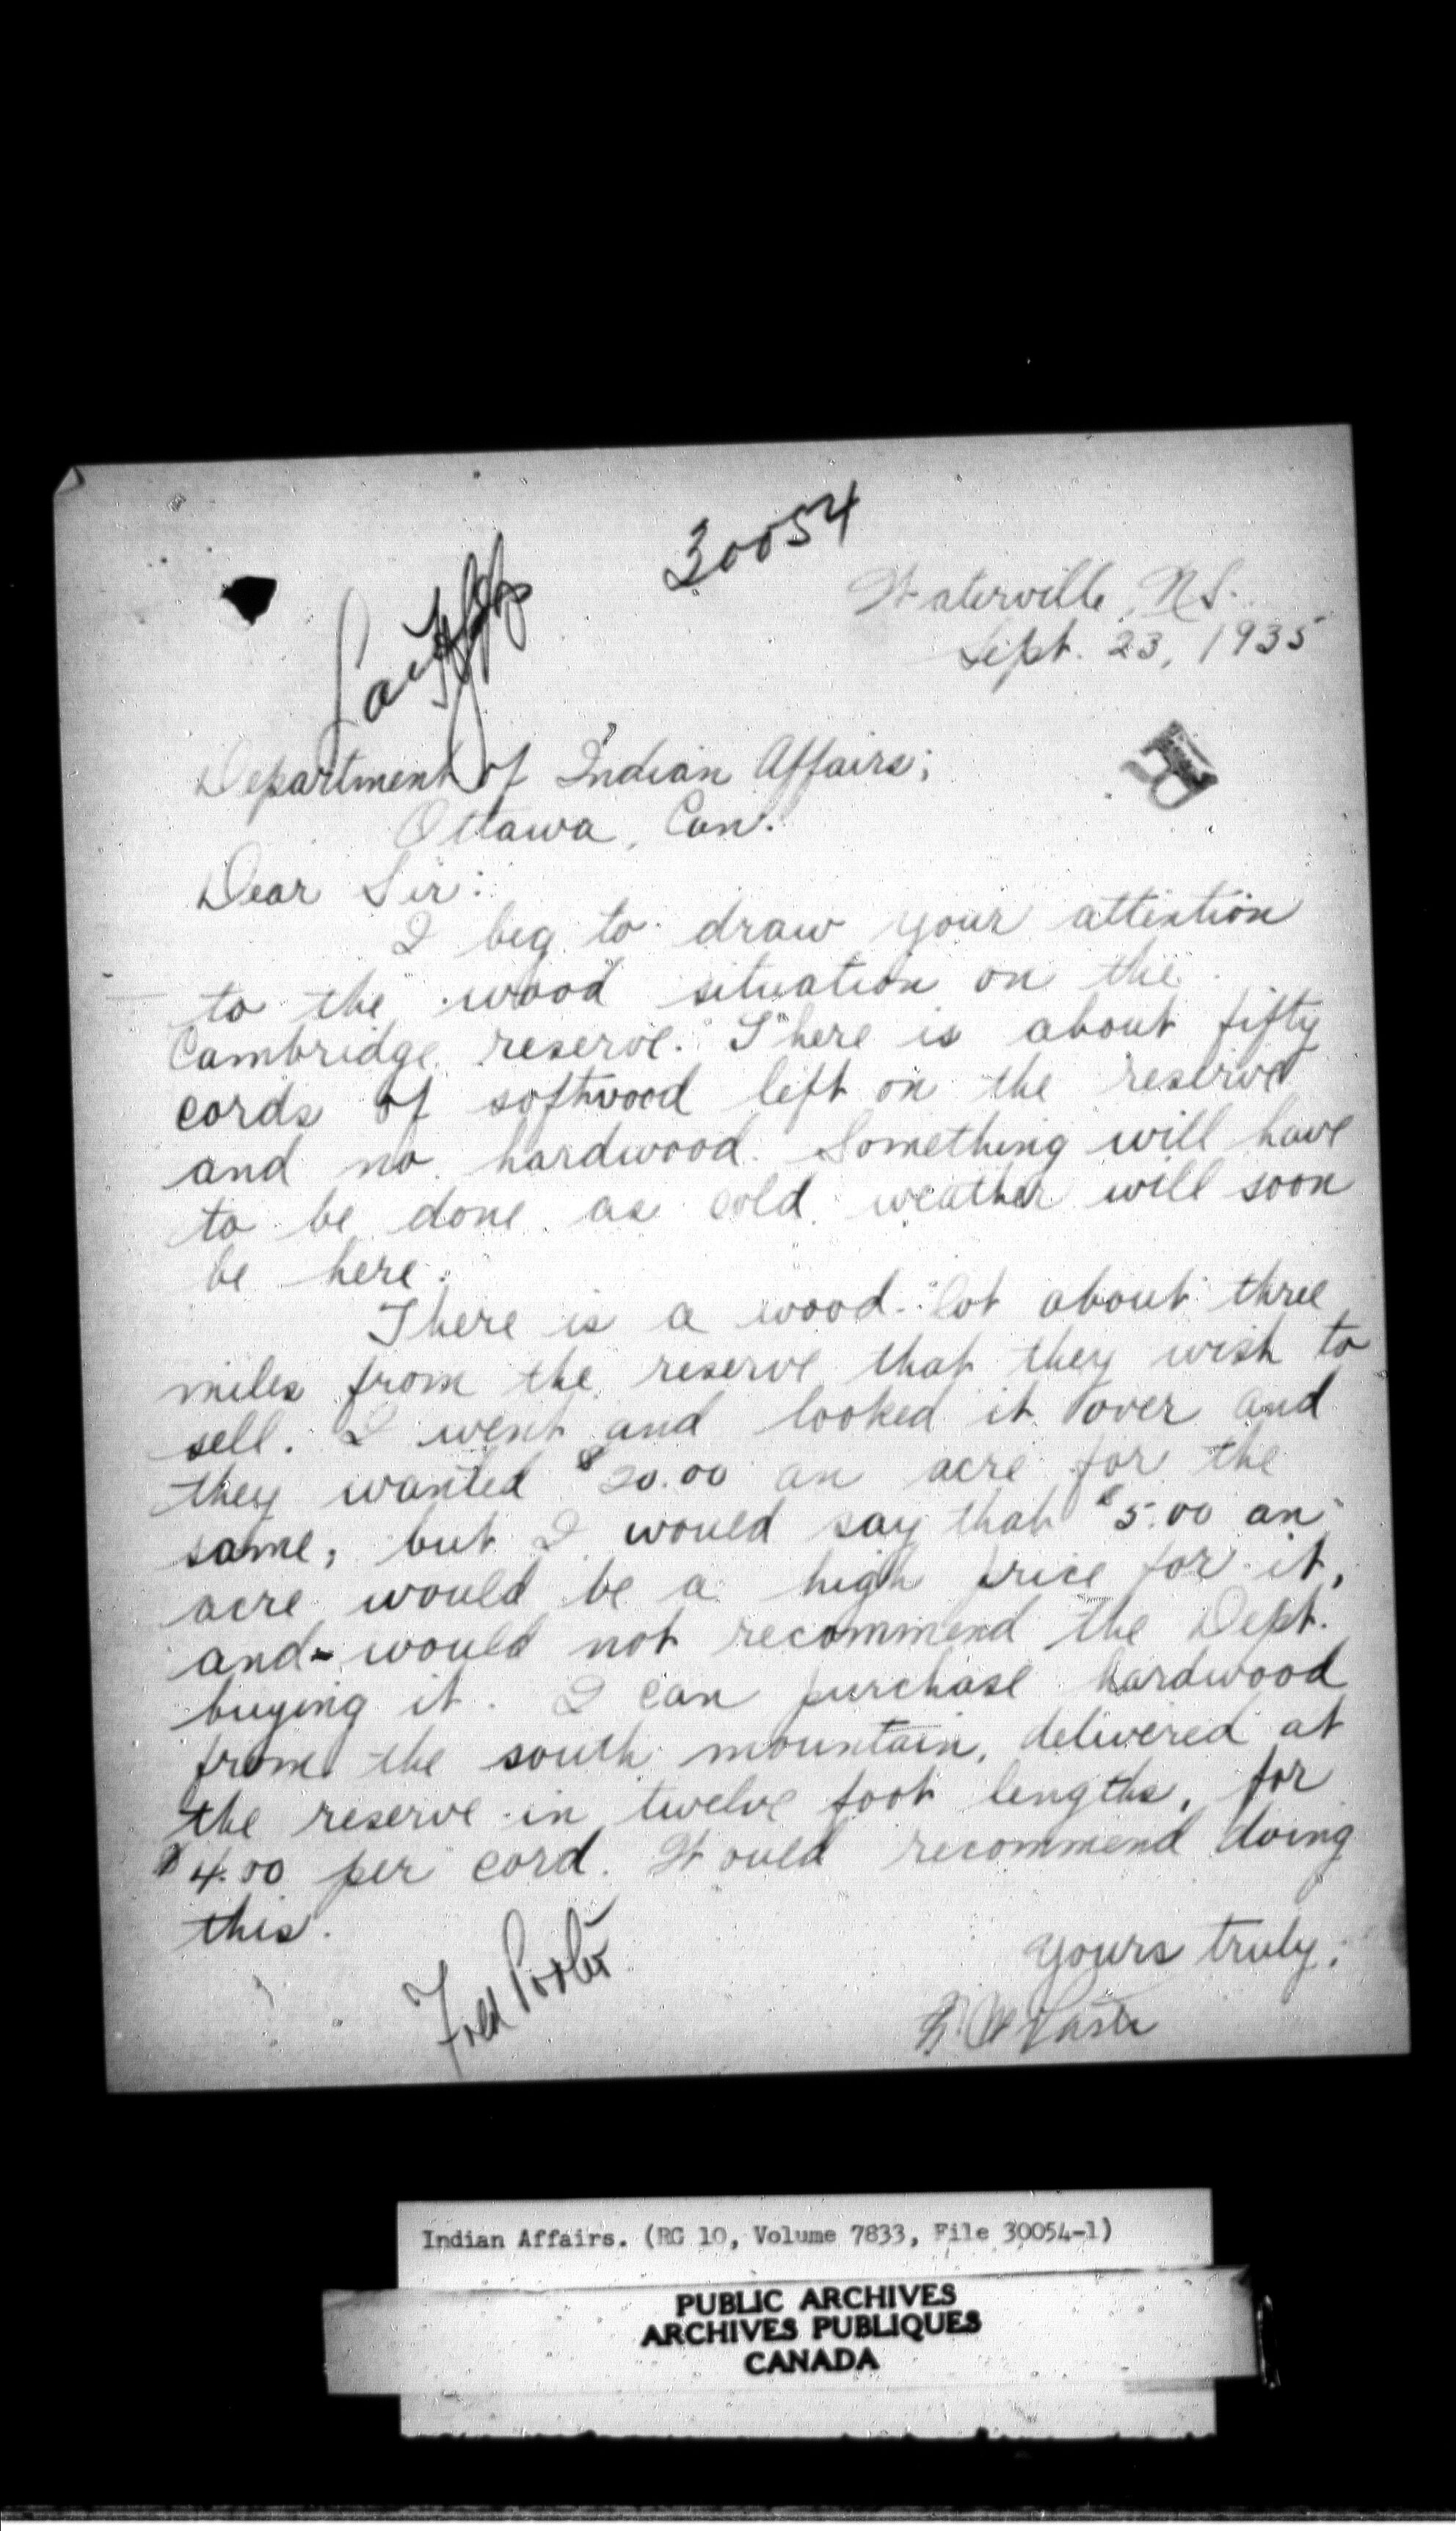 30054
Waterville, N.S.
Sept. 23, 1935
Department of Indian Affairs;
Ottawa, Can.
Dear Sir:
I beg to draw your attention
to the wood situation on the
Cambridge reserve. There is about fifty
cords of softwood left on the reserve
and no hardwood. Something will have
to be done as cold weather will soon
be here.
There is a wood-lot about three
miles from the reserve that they wish to
sell. I went and looked it over and
they wanted $20.00 an acre for the
same, but I would say that $5.00 an
acre would be a high price for it,
and would not recommend the Dept.
buying it. I can purchase hardwood
from the south mountain, delivered at
the reserve in twelve foot lengths, for
$4.00 per cord. Would recommend doing
this.
Yours truly,
Fred
Indian Affairs. (RG 10, Volume 7833, File 30054-1)
PUBLIC ARCHIVES
ARCHIVES PUBLIQUES
CANADA